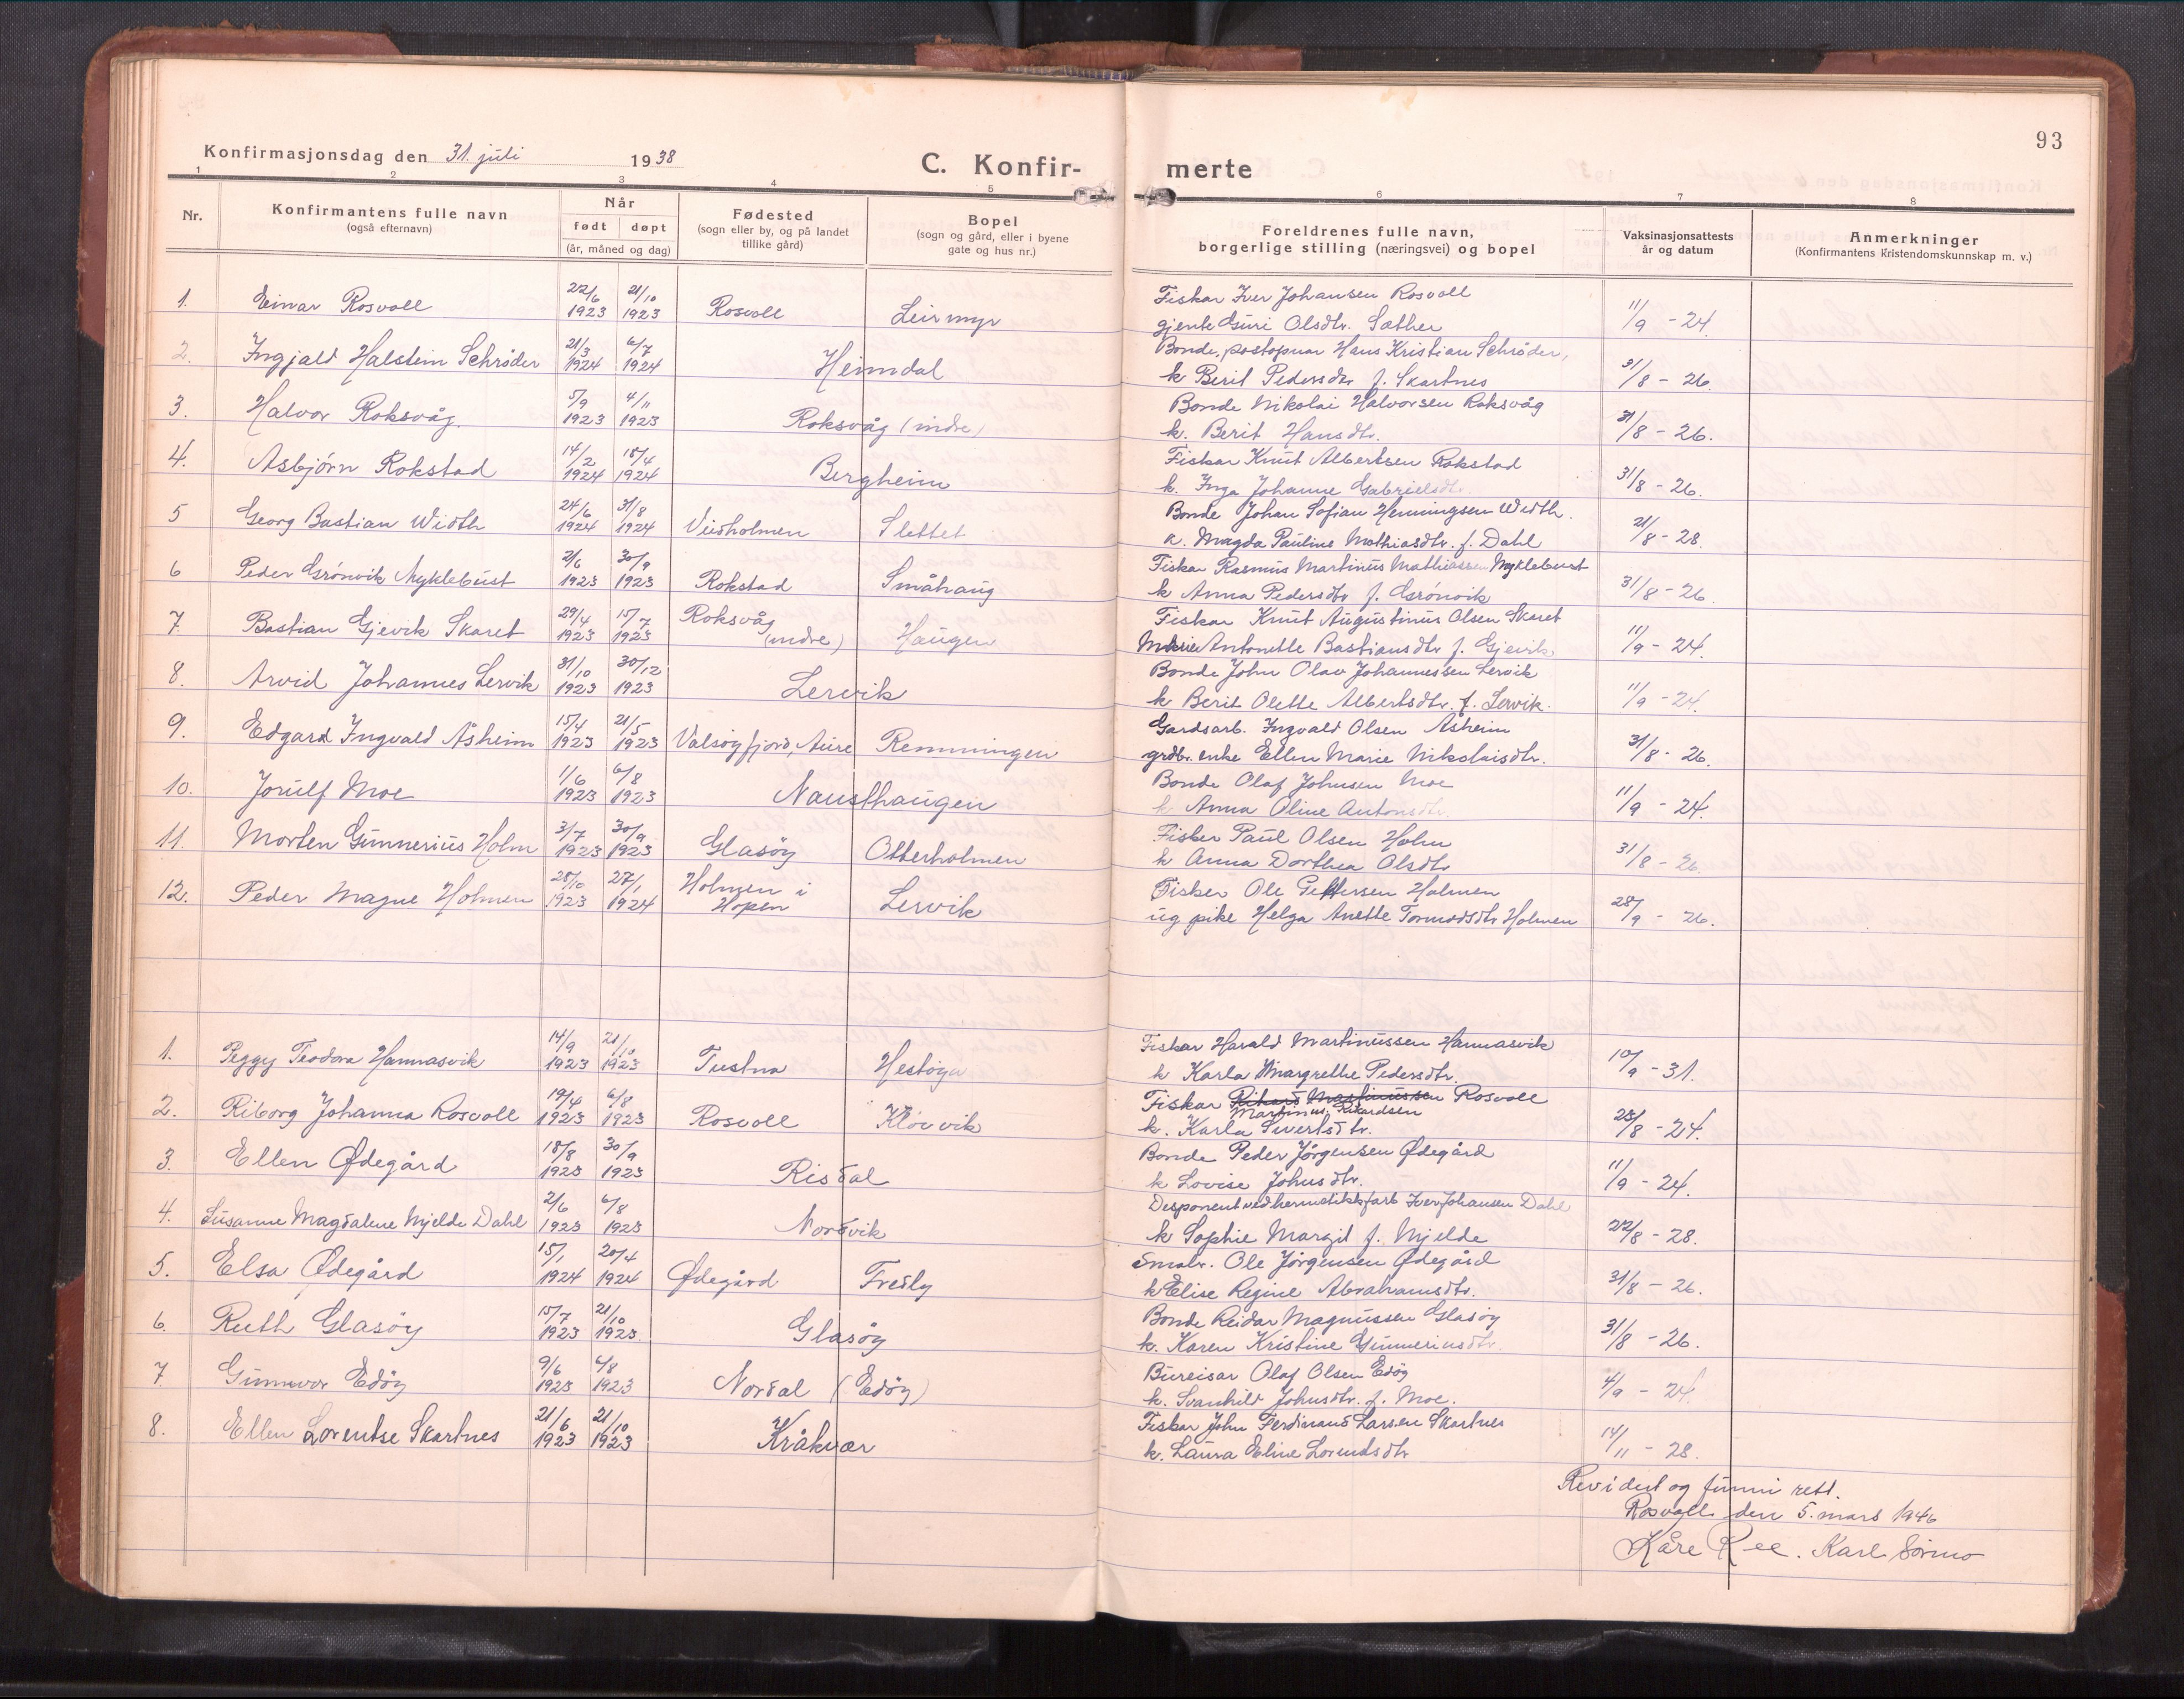 93
Konfirmasjonsdag den 31. juli 1938
C. Konfir- merte
1 2 3 4 5 6 7 8
Nr.
Konfirmantens fulle navn
(også efternavn)
Når
født døpt
(år, måned og dag)
Fødested
(sogn eller by, og på landet
tillike gård)
Bopel
(sogn og gård, eller i byene
gate og hus nr.)
Foreldrenes fulle navn,
borgerlige stilling (næringsvei) og bopel
Vaksinasjonsattests
år og datum
Anmerkninger
(Konfirmantens kristendomskunnskap m. v.)
1. Einar Rosvoll 22/6 1923 21/10 1923 Rosvoll Leirmyr
Fiskar Iver Johansen Rosvoll
gjente Guri Olsdtr. Sæther 11/9 - 24.
2. Ingjald Halstein Schrøder 21/3 1924 6/7 1924 Heimdal
Bonde, postopnar Hans Kristian Schrøder,
k Berit Pedersdtr f. Skartnes 31/8 - 26.
3. Halvor Roksvåg. 5/9 1923 4/11 1923 Roksvåg (indre)
Bonde Nikolai Halvorsen Roksvåg
k. Berit Hansdtr. 31/8 - 26.
4. Asbjørn Rokstad 14/2 1924 18/4 1924 Bergheim
Fiskar Knut Albertsen Rokstad
k. Inga Johanne Gabrielsdtr. 31/8 - 26.
5 Georg Bastian Width 24/6 1924 31/8 1924 Veidholmen Slettet
Bonde Johan Sofian Henningsen Width.
k. Magda Pauline Mathiasdtr. f. Dahl 21/8 - 28.
6 Peder Grønvik Myklebust 2/6 1923 30/9 1923 Rokstad Småhaug
Fiskar Rasmus Martinus Mathiassen Myklebust
k Anna Pedersdtr f. Grønvik 31/8 - 26.
7. Bastian Gjevik Skaret 29/4 1923 15/7 1923 Roksvåg (indre) Haugen
Fiskar Knut Augustinus Olsen Skaret
Marie Antonette Bastiansdtr f. Gjevik 11/9 - 24.
8. Arvid Johannes Lervik 31/10 1923 30/12 1923 Lervik
Bonde John Olav Johannessen Lervik
k Berit Olette Albertsdtr. f. Lervik. 11/9 - 24.
9. Edgard Ingvald Åsheim 15/4 1923 21/5 1923 Valsøyfjord, Aure Remmingen
Gardsarb. Ingvald Olsen Åsheim
grdbr. enke Ellen Marie Nikolaisdtr. 31/8 - 26.
10. Jorulf Moe 1/6 1923 6/8 1923 Nausthaugen
Bonde Olaf Johnsen Moe
k. Anna Oline Antonsdtr. 11/9 - 24.
11. Morten Gunnerius Holm 3/7 1923 30/9 1923 Glasøy Otterholmen
Fisker Paul Olsen Holm
k Anna Dorthea Olsdtr 31/8 - 26.
12. Peder Magne Holmen 28/10 1923 27/1 1924 Holmen i Hopen Lervik
Fisker Ole Pettersen Holmen
ug pike Helga Anette Tormodsdtr Holmen 28/9 - 26.
1. Peggy Teodora Hannasvik 14/9 1923 21/10 1923 Tustna Hestøya
Fiskar Harald Martinussen Hannasvik
k Karla Margrethe Pedersdtr. 10/9 - 31.
2. Riborg Johanna Rosvoll 19/4 1923 6/8 1923 Rosvoll Kløvvik
Fiskar Rikard Martinussen Rosvoll
Martinus Rikardsen
k. Karla Sivertsdtr. 28/8 - 24.
3. Ellen Ødegård 18/8 1923 30/9 1923 Risdal
Bonde Peder Jørgensen Ødegård
k Lovise Johnsdtr. 11/9 - 24.
4. Susanne Magdalene Mjelde Dahl 2/6 1923 6/8 1923 Nordvik
Desponent ved hermetikkfarb Iver Johansen Dahl
k Sophie Margit f. Mjelde 22/8 - 28.
5. Elsa Ødegård 15/1 1924 20/4 1924 Ødegård Fredly
Småbr. Ole Jørgensen Ødegård
k Elise Regine Abrahamsdtr. 31/8 - 26.
6. Ruth Glasøy 15/7 1923 21/10 1923 Glasøy
Bonde Reidar Magnussen Glasøy
k. Karen Kristine Gunneriusdtr. 31/8 - 26.
7 Gunnvor Edøy 9/6 1923 6/8 1923 Nordal (Edøy)
Bureisar Olaf Olsen Edøy
k. Svanhild Johnsdtr. f. Moe. 4/9 - 24.
8. Ellen Lorentse Skartnes 21/6 1923 21/10 1923 Kråkvær
Fiskar John Ferdinand Larsen Skartnes
k. Laura Eline Lorentsdtr 14/11 - 28.
Revidert og funni rett.
Rosvoll den 5. mars 1946
Kåre Ree. Karl Sørmo